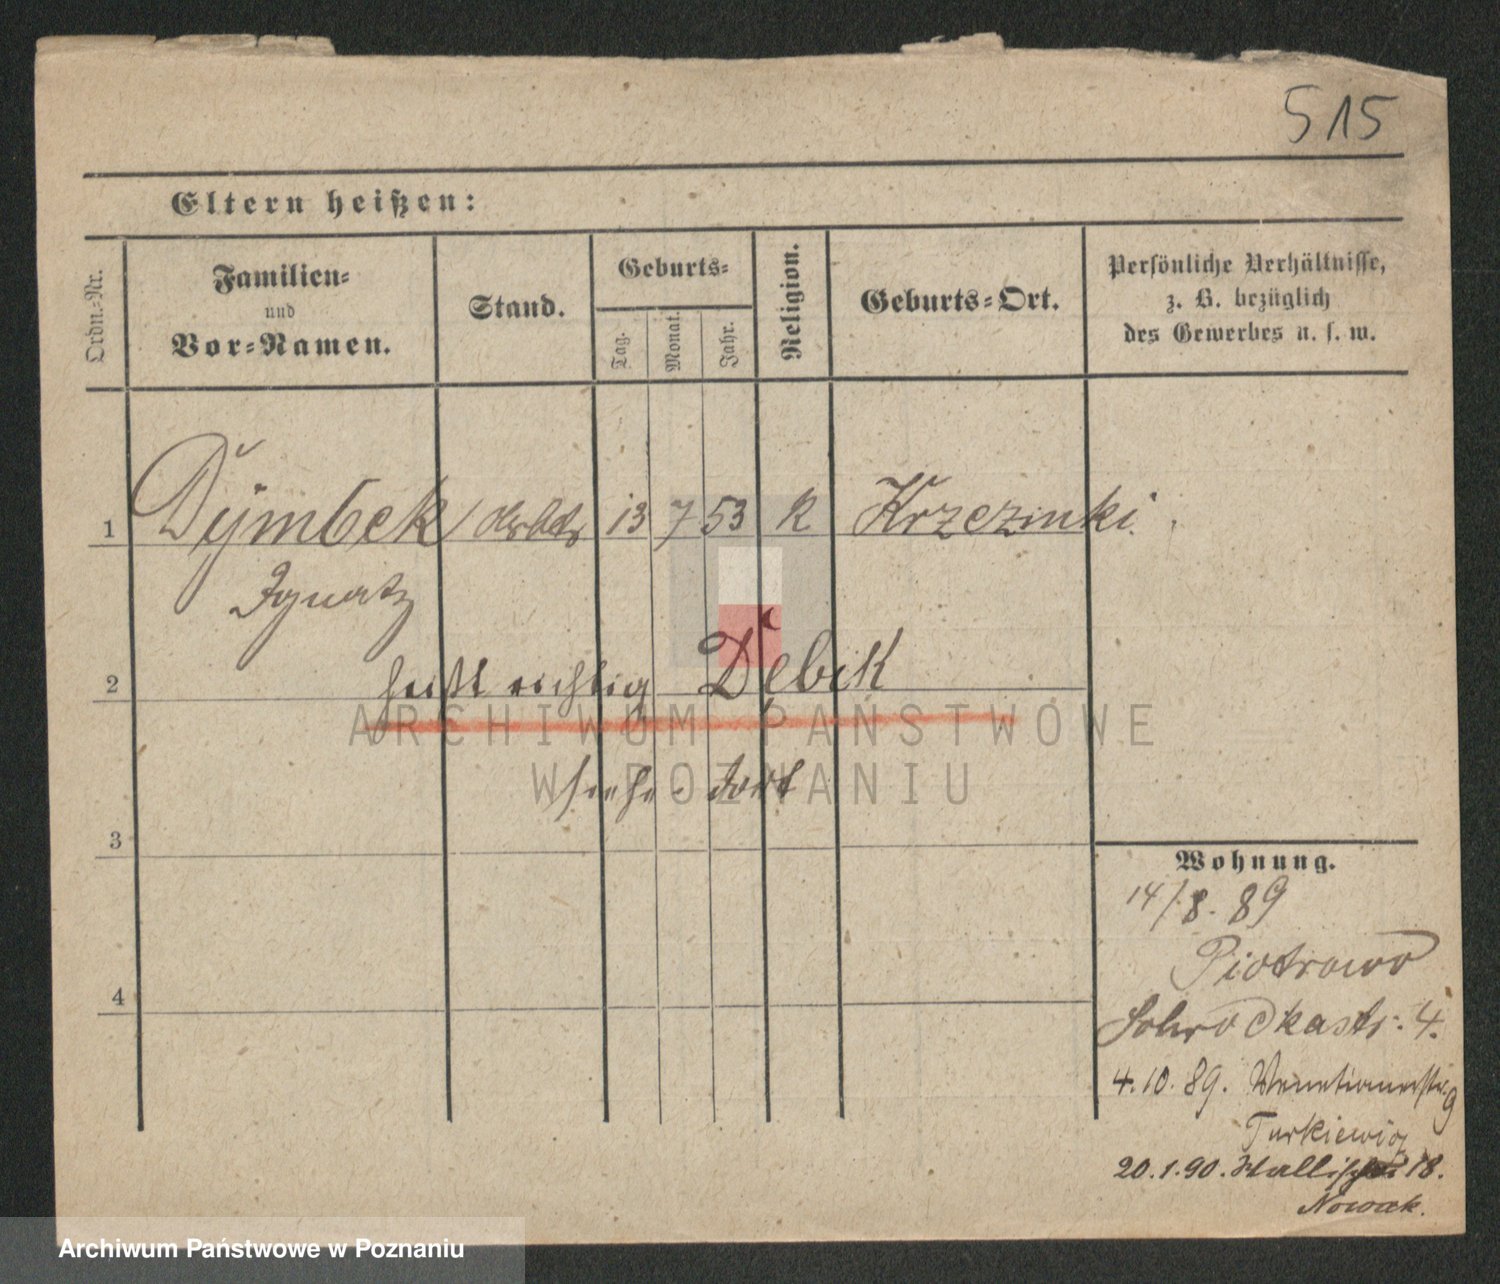 515
Eltern heißen:
Ordn.-Nr.
Familien-
und
Vor-Namen.
Stand.
Geburts-
Tag.
Monat.
Jahr.
Religion.
Geburts-Ort.
Persönliche Verhältnisse,
z. B. bezüglich
des Gewerbes u. s. w.
1 Dymbek 13 7 53 k Krzezinki.
Ignatz
2 heißt richtig Dębik
ARCHIWUM PAŃSTWOWE
W POZNANIU
siehe dort
3
Wohnung.
14/8. 89
Piotrowo
4
Schrodkastr. 4.
4.10.89. Venetianerstr. 9
Turkiewicz
20.1.90. 18.
Nowak.
Archiwum Państwowe w Poznaniu